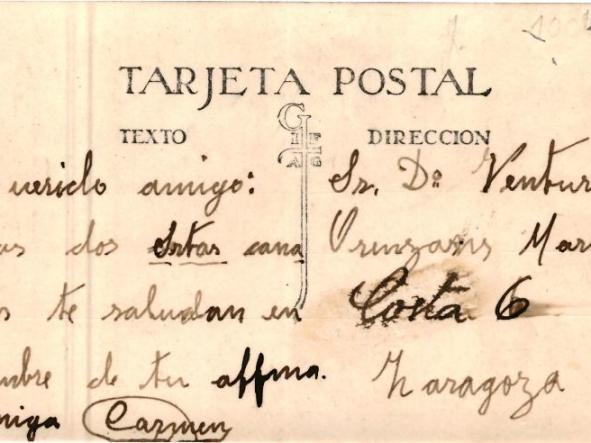 TARJETA POSTAL
TEXTO
DIRECCION
uerido amigo:
as dos Srtas cana
s te saludan en
mbre de tu affma.
miga Carmen
Sr. Dn Ventur
Mar
Costa 6
Zaragoza